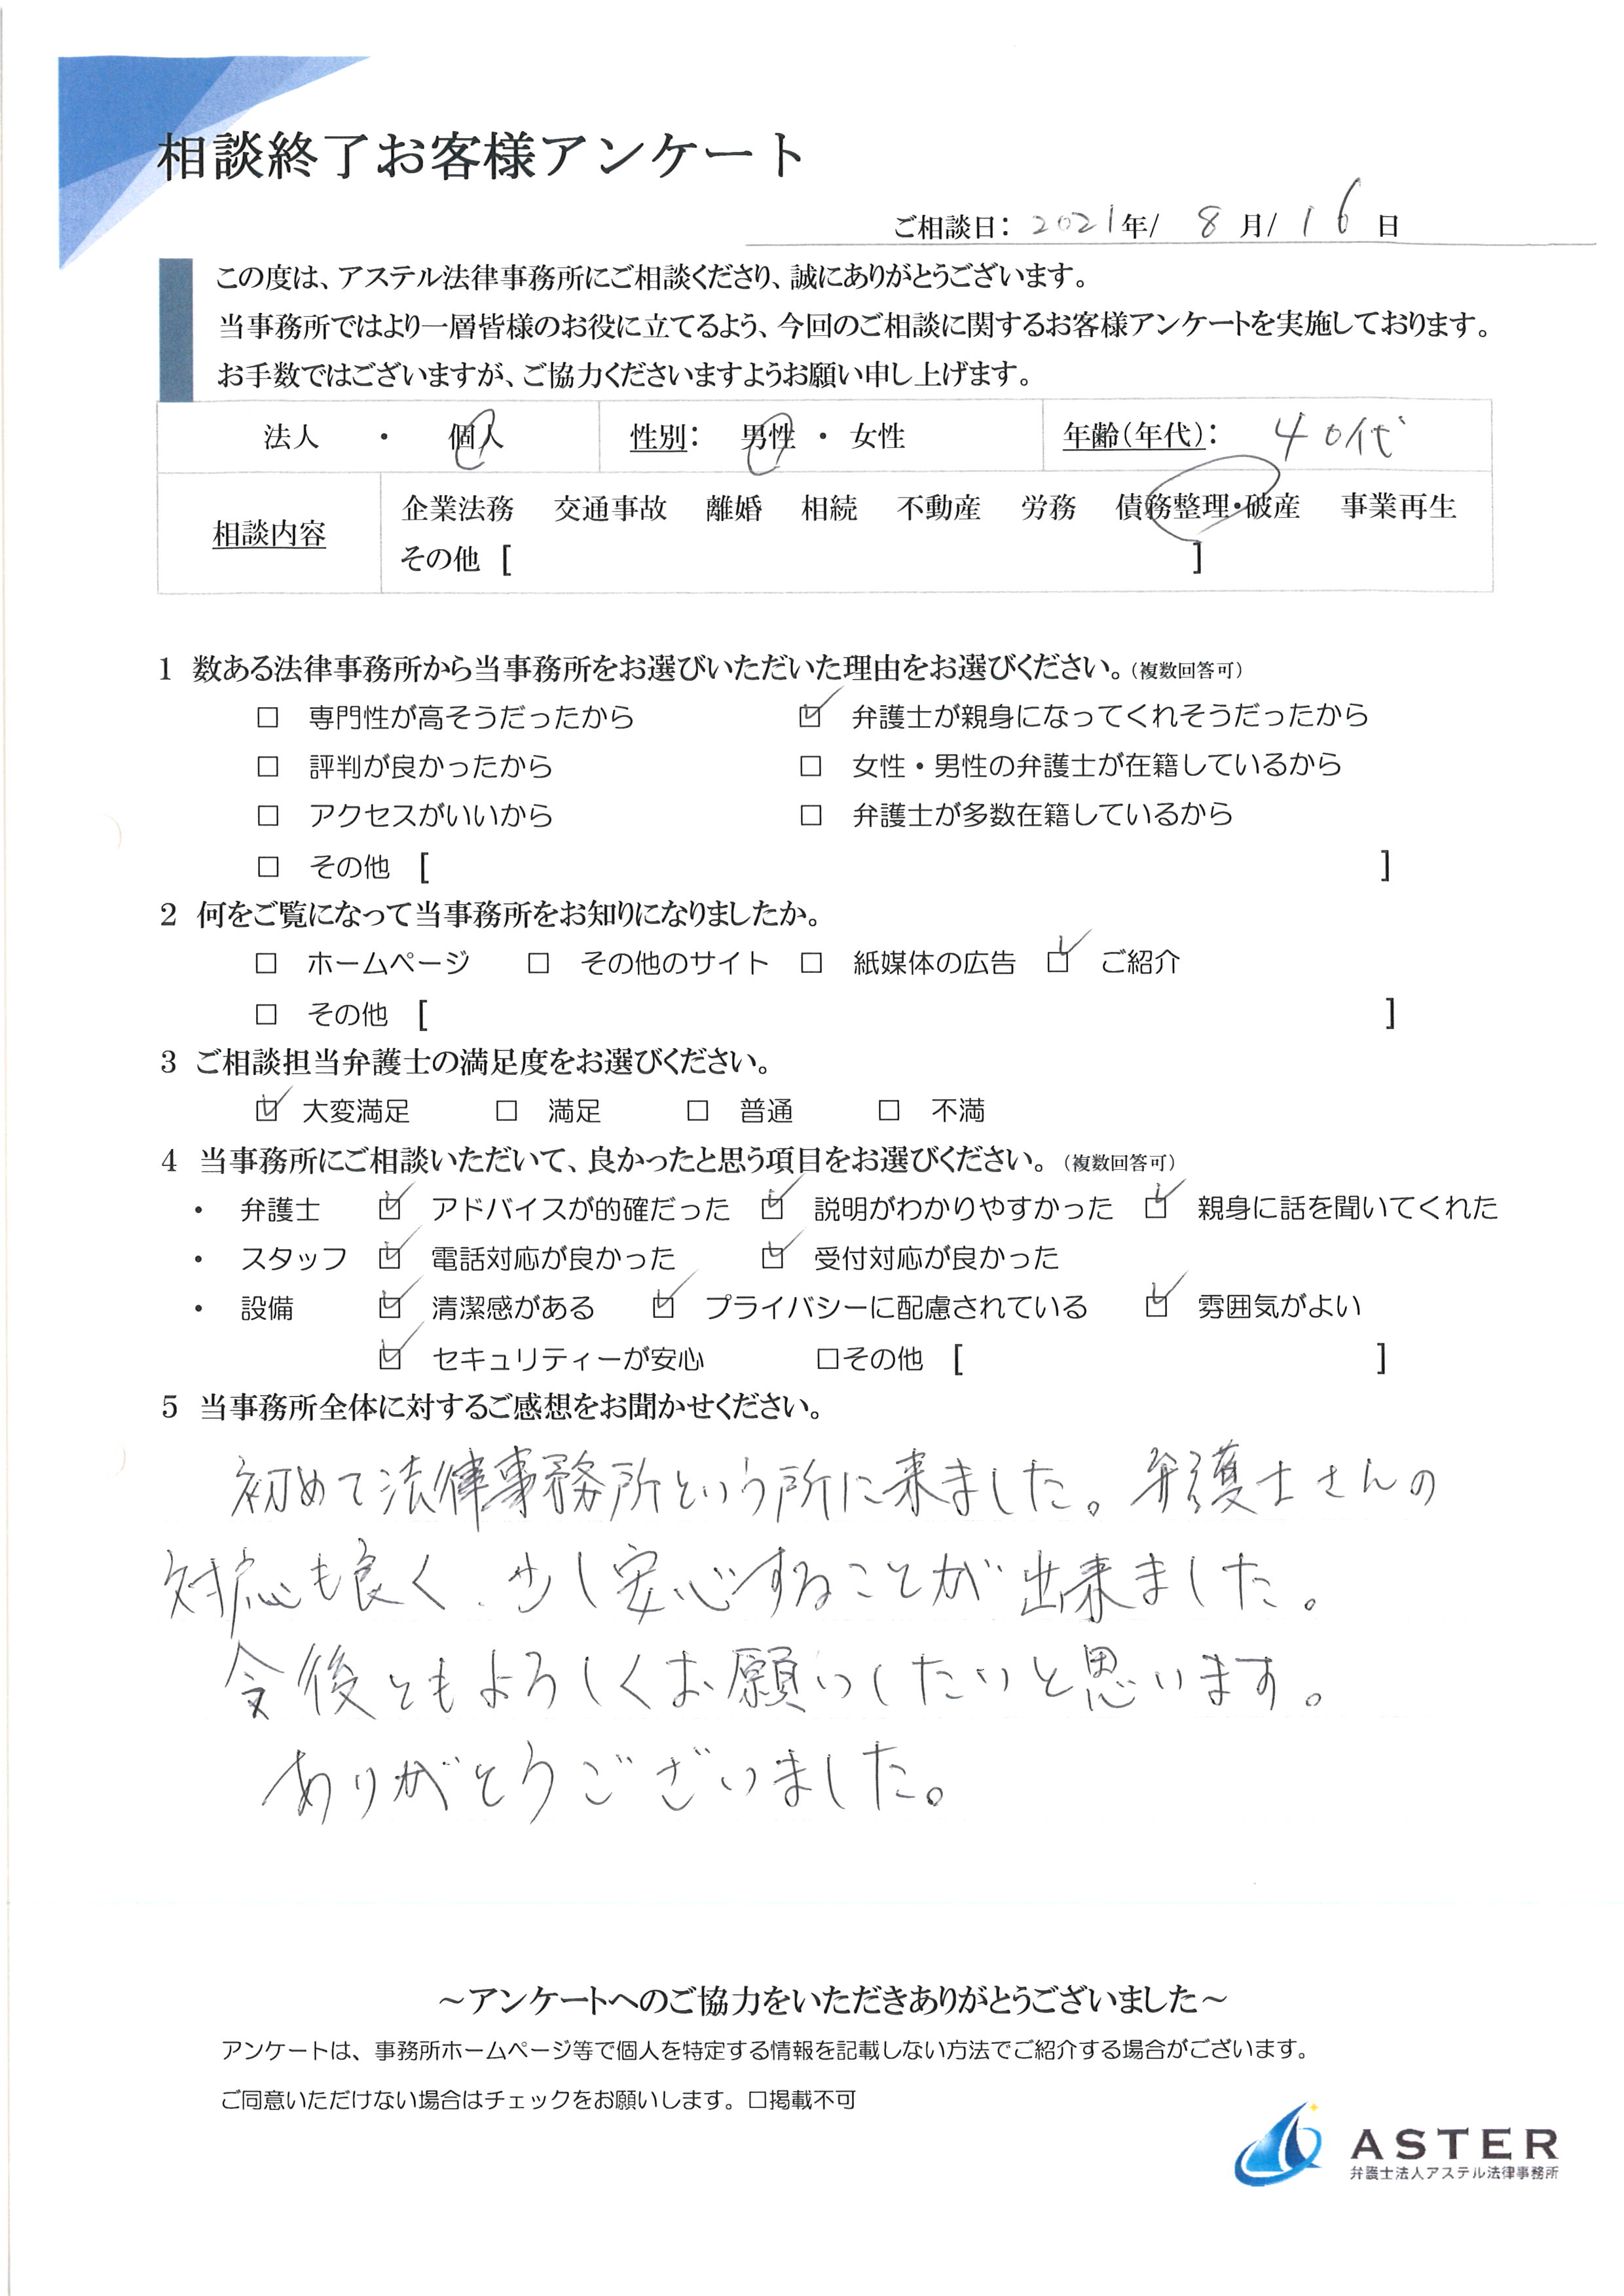 相談終了お客様アンケート
ご相談日： 2021年/ 8月/ 16日
この度は、アステル法律事務所にご相談くださり、誠にありがとうございます。
当事務所ではより一層皆様のお役に立てるよう、今回のご相談に関するお客様アンケートを実施しております。
お手数ではございますが、ご協力くださいますようお願い申し上げます。
法人 ・ 個人 性別： 男性 ・ 女性 年齢（年代）： 40代
相談内容 企業法務 交通事故 離婚 相続 不動産 労務 債務整理・破産 事業再生
その他 [ ]
1 数ある法律事務所から当事務所をお選びいただいた理由をお選びください。（複数回答可）
□ 専門性が高そうだったから ☑ 弁護士が親身になってくれそうだったから
□ 評判が良かったから □ 女性・男性の弁護士が在籍しているから
□ アクセスがいいから □ 弁護士が多数在籍しているから
□ その他 [ ]
2 何をご覧になって当事務所をお知りになりましたか。
□ ホームページ □ その他のサイト □ 紙媒体の広告 ☑ ご紹介
□ その他 [ ]
3 ご相談担当弁護士の満足度をお選びください。
☑ 大変満足 □ 満足 □ 普通 □ 不満
4 当事務所にご相談いただいて、良かったと思う項目をお選びください。（複数回答可）
・ 弁護士 ☑ アドバイスが的確だった ☑ 説明がわかりやすかった ☑ 親身に話を聞いてくれた
・ スタッフ ☑ 電話対応が良かった ☑ 受付対応が良かった
・ 設備 ☑ 清潔感がある ☑ プライバシーに配慮されている ☑ 雰囲気がよい
☑ セキュリティーが安心 □その他 [ ]
5 当事務所全体に対するご感想をお聞かせください。
初めて法律事務所という所に来ました。弁護士さんの
対応も良く、少し安心することが出来ました。
今後ともよろしくお願いしたいと思います。
ありがとうございました。
～アンケートへのご協力をいただきありがとうございました～
アンケートは、事務所ホームページ等で個人を特定する情報を記載しない方法でご紹介する場合がございます。
ご同意いただけない場合はチェックをお願いします。□掲載不可
ASTER
弁護士法人アステル法律事務所